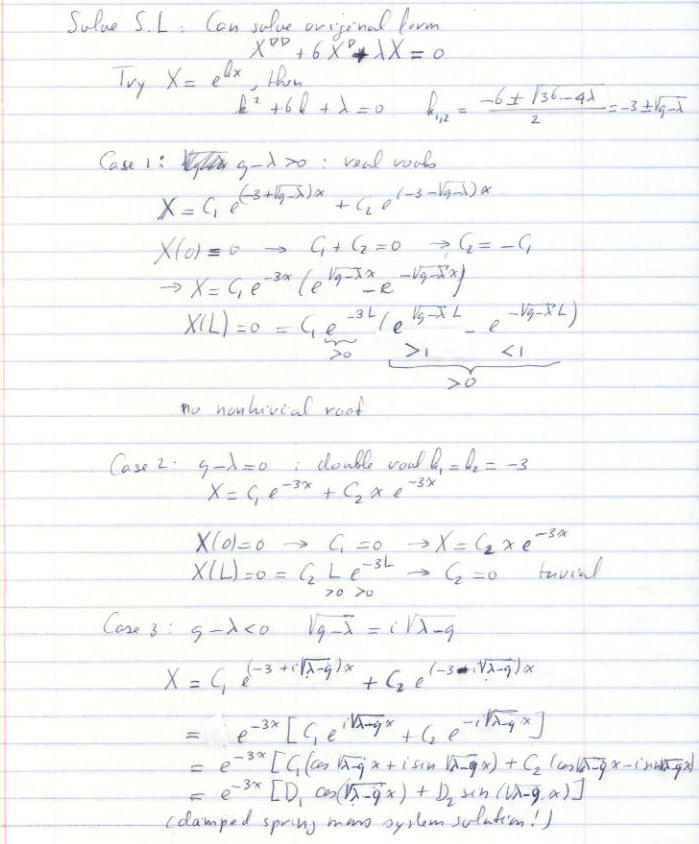 Solve S.L: Can solve original form
X'' + 6X' + λX = 0
Try X = e^{kx}, then
k² + 6k + λ = 0 k_{1,2} = (-6 ± √(36-4λ))/2 = -3 ± √(9-λ)
Case 1: 9-λ > 0 : real roots
X = C₁ e^{(-3+√(9-λ))x} + C₂ e^{(-3-√(9-λ))x}
X(0) = 0 → C₁ + C₂ = 0 → C₂ = -C₁
→ X = C₁ e^{-3x} (e^{√(9-λ) x} - e^{-√(9-λ) x})
X(L) = 0 = C₁ e^{-3L} (e^{√(9-λ) L} - e^{-√(9-λ) L})
>0 >1 <1
>0
no nontrivial root
Case 2: 9-λ=0 : double root k₁ = k₂ = -3
X = C₁ e^{-3x} + C₂ x e^{-3x}
X(0)=0 → C₁ = 0 → X = C₂ x e^{-3x}
X(L) = 0 = C₂ L e^{-3L} → C₂ = 0 trivial
>0 >0
Case 3: 9-λ<0 √(9-λ) = i√(λ-9)
X = C₁ e^{(-3+i√(λ-9))x} + C₂ e^{(-3-i√(λ-9))x}
= e^{-3x} [C₁ e^{i√(λ-9) x} + C₂ e^{-i√(λ-9) x}]
= e^{-3x} [C₁(cos √(λ-9) x + i sin √(λ-9) x) + C₂ (cos √(λ-9) x - i sin √(λ-9) x)
= e^{-3x} [D₁ cos(√(λ-9) x) + D₂ sin(√(λ-9) x)]
(damped spring mass system solution!)